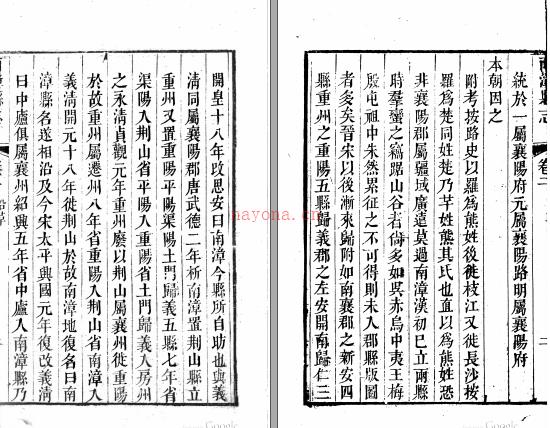 統於一屬襄陽府元屬襄陽路明屬襄陽府
本朝因之
附考按路史以羅爲熊姓後徙枝江又徙長沙按
羅爲楚同姓楚乃芈姓熊其氏也直以爲熊姓恐
非襄陽郡屬疆域廣遠莫過南漳漢初已立兩縣
時羣蠻之竊踞山谷者尚多如吳赤烏中夷王梅
殷屯祖中朱然累征之不可得則未入郡縣版圖
者多矣晉宋以後漸來歸附如南襄郡之新安四
縣重州之重陽五縣歸義郡之左安開南歸仁三
開皇十八年改思安曰南漳今縣所自助也與義
淸同屬襄陽郡唐武德二年析南漳置荆山縣立
重州又置重陽平陽渠陽土門歸義五縣七年省
渠陽入荆山省平陽入重陽省土門歸義入房州
之永淸貞觀元年重州廢以荆山屬襄州徙重陽
於故重州屬遷州八年省重陽入荆山省南漳入
義淸開元十八年徙荆山於故南漳地復名曰南
漳縣名遂相沿及今宋太平興國元年復改義淸
曰中廬俱屬襄陽郡紹興五年省中廬入南漳縣乃
nayona.cn
Google
Google